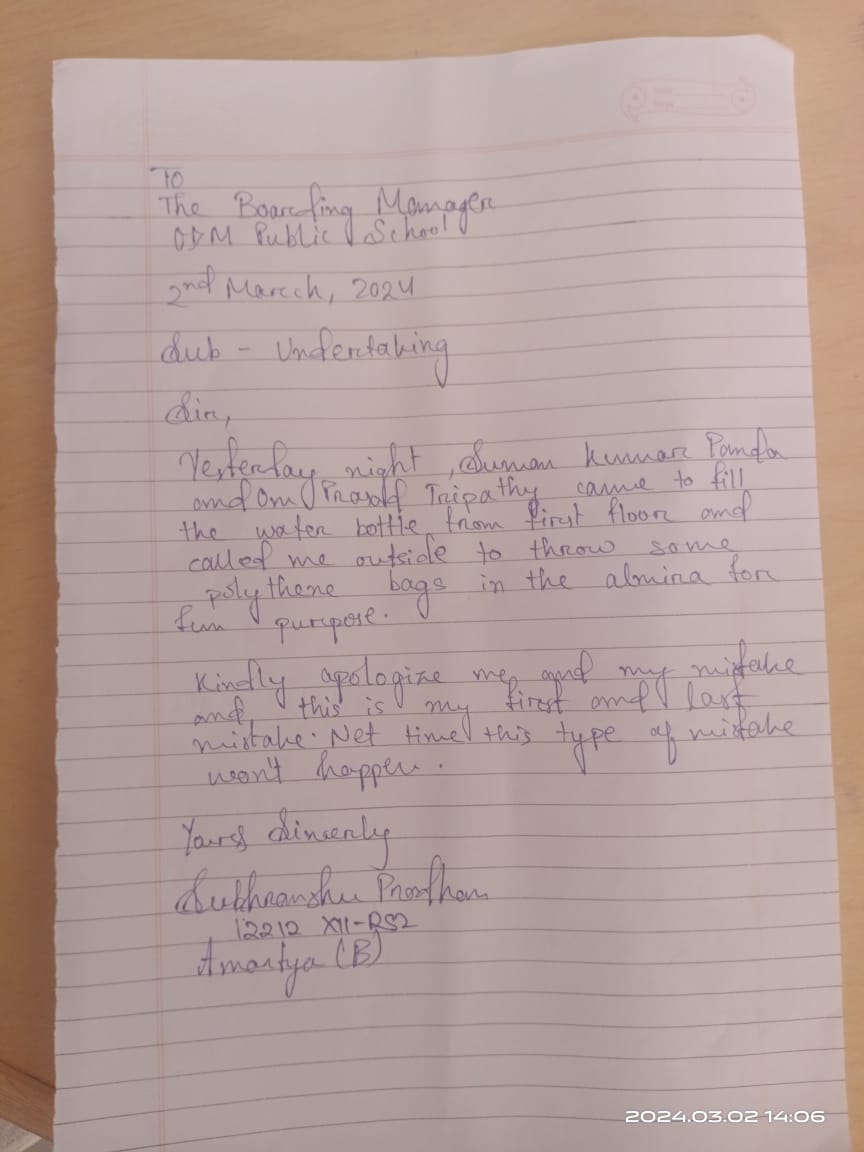 To
The Boarding Manager
ODM Public School
2nd March, 2024
Sub - Undertaking
Sir,
Yesterday night, Suman Kumar Panda
and Om Prasad Tripathy came to fill
the water bottle from first floor and
called me outside to throw some
polythene bags in the almira for
fun purpose.
Kindly apologize me and my mistake
and this is my first and last
mistake. Net time this type of mistake
won't happen.
Yours Sincerly
Subhranshu Pradhan
12212 XII-RS2
Amartya (B)
2024.03.02 14:06